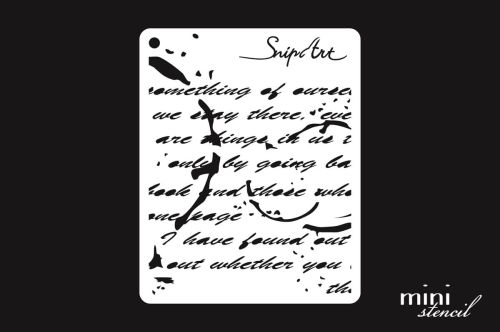 SnipArt
omething of ourse
we stay there, eve
are things in us t
only by going ba
look and those who
one page
I have found out
out whether you
th
mini
stencil